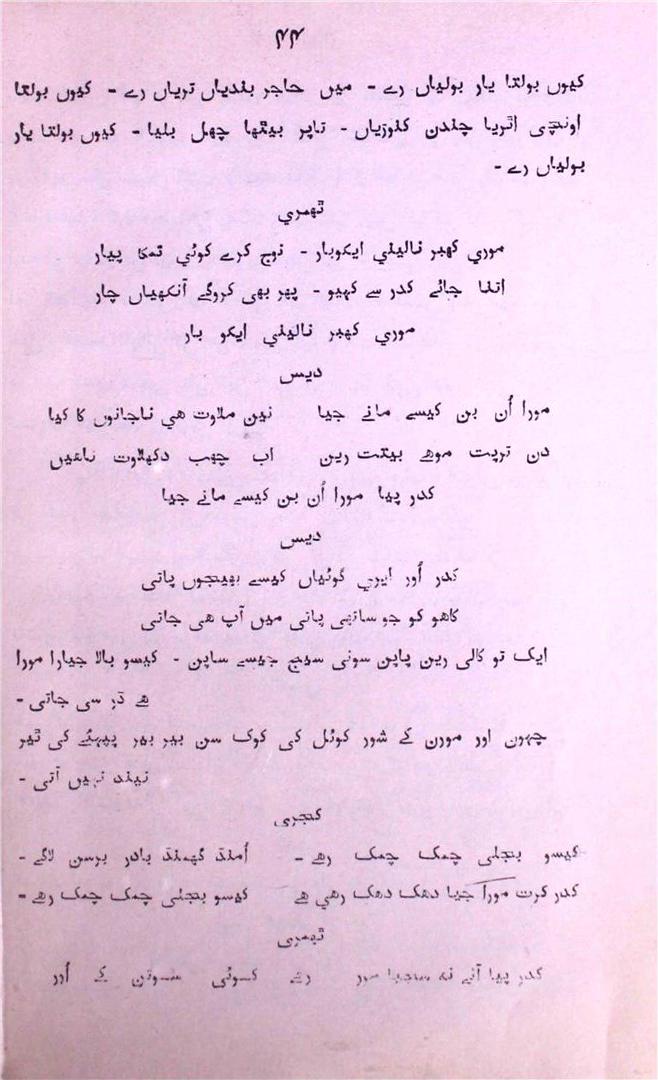 ۴۴
کیوں بولتا یار بولیاں رے - میں حاجر بندیاں تریاں رے - کیوں بولتا
اونچی اٹریا چندن کنوڑیاں - تاپر بیٹھا چھل بلیا - کیوں بولتا یار
بولیاں رے -
ٹھمری
موري کھبر نالیني ایکوبار - نوج کرے کوئي تمکا پیار
اتنا جائے کدر سے کہیو - پھر بھی کروگے آنکھیاں چار
موري کھبر نالیني ایکو بار
دیس
مورا اُن بن کیسے مانے جیا نین ملاوت هي ناجانوں کا کیا
دن تڑپت موهے بیتت رین اب چھب دکھلاوت ناهیں
کدر پیا مورا اُن بن کیسے مانے جیا
دیس
کدر اُور ایري گوئیاں کیسے بھیجوں پاتی
کاهو کو جو سانچی پانی میں آپ هی جاتی
ایک تو کالی رین پاپن سونی سیج جیسے ساپن - کیسو بالا جیارا مورا
هے ڈر سی جاتی -
چہون اور مورن کے شور کوئل کی کوک سن بیر بیر پیہے کی ٹیر
نیند نہیں آتی -
کجری
کیسو بجلی چمک چمک رهے - اُمنڈ گھمنڈ بادر برسن لاگے -
کدر کرت مورا جیا دهک دهک رهي هے کیسو بجلی چمک چمک رهے -
ٹھمری
کدر پیا آئے نه سجیا مور رے کوئی سوتن کے اُور